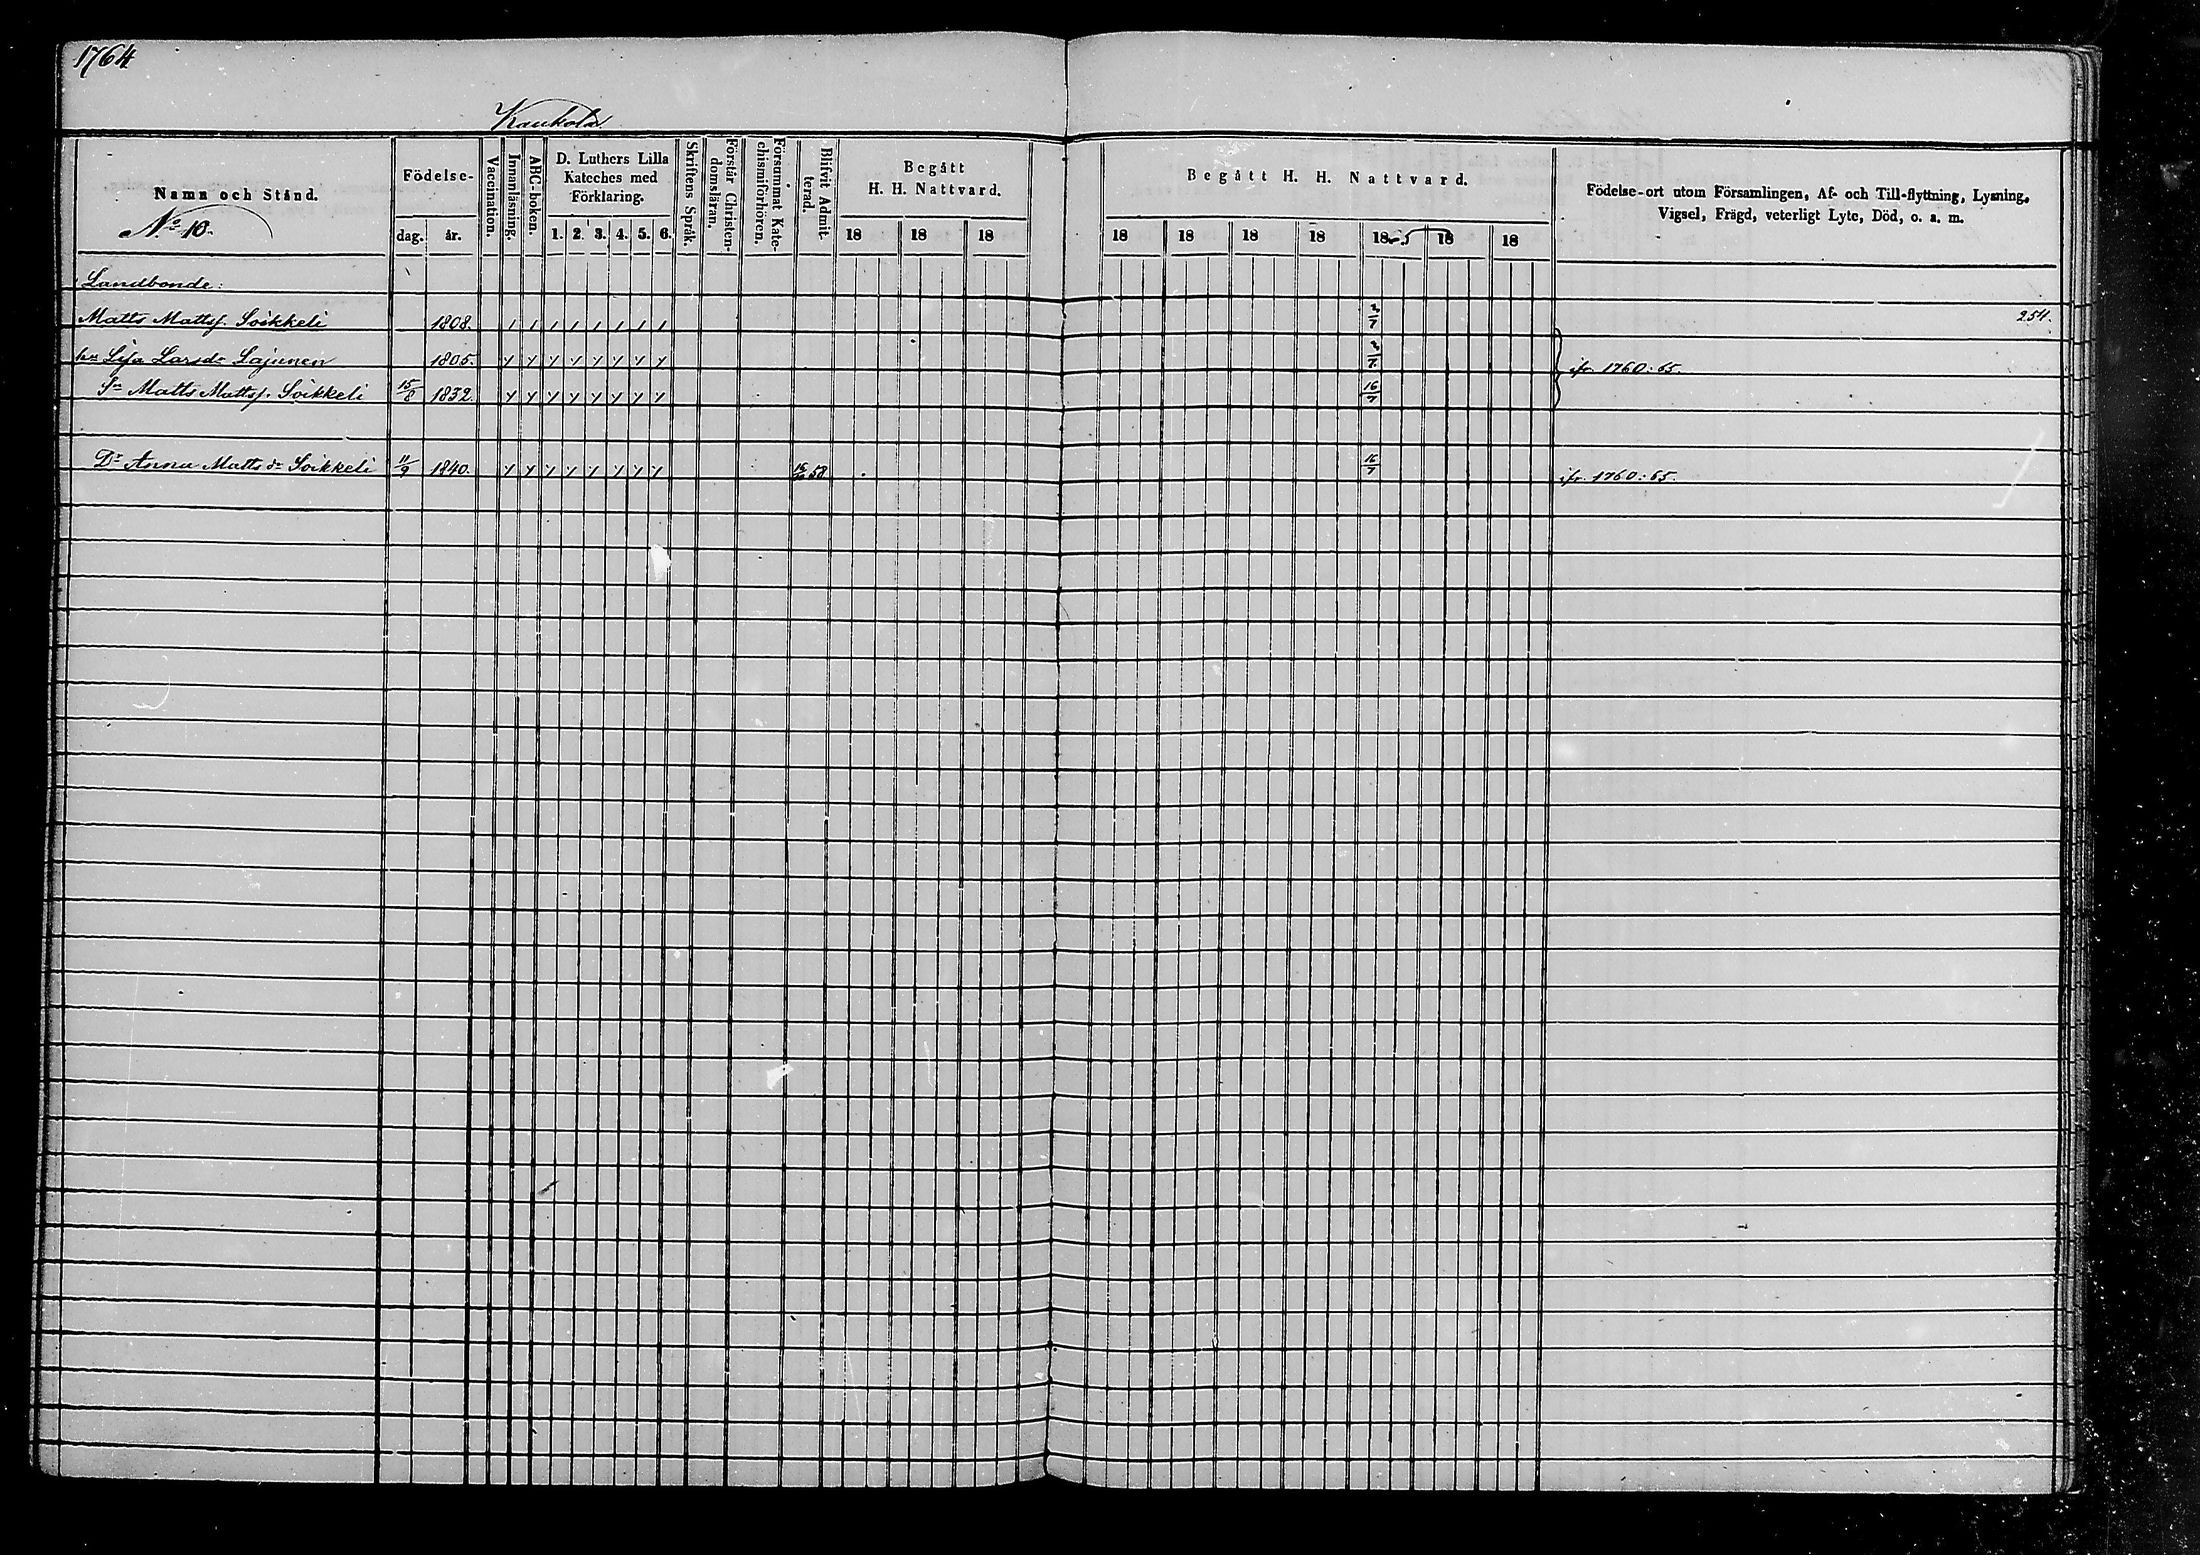 1764
Kaukola
Namn och Stånd.
No 10.
Födelse-
dag. år.
Vaccination.
Innanläsning.
ABC-boken.
D. Luthers Lilla
Kateches med
Förklaring.
1. 2. 3. 4. 5. 6.
Skriftens Språk.
Förstår Christen-
domsläran.
Försummat Kate-
chismiförhören.
Blifvit Admit-
terad.
Begått
H. H. Nattvard.
18 18 18
Begått H. H. Nattvard.
18 18 18 18 18 18 18
Födelse-ort utom Församlingen, Af- och Till-flyttning, Lysning,
Vigsel, Frägd, veterligt Lyte, Död, o. a. m.
Landbonde:
Matts Mattss. Soikkeli 1808. 254.
hu Lisa Larsdr Lajunen 1805. ifr. 1760: 65.
Sn Matts Mattss. Soikkeli 15/8 1832. 16/7
Dr Anna Matts dr Soikkeli 11/9 1840. 58. 16/7 ifr. 1760: 65.